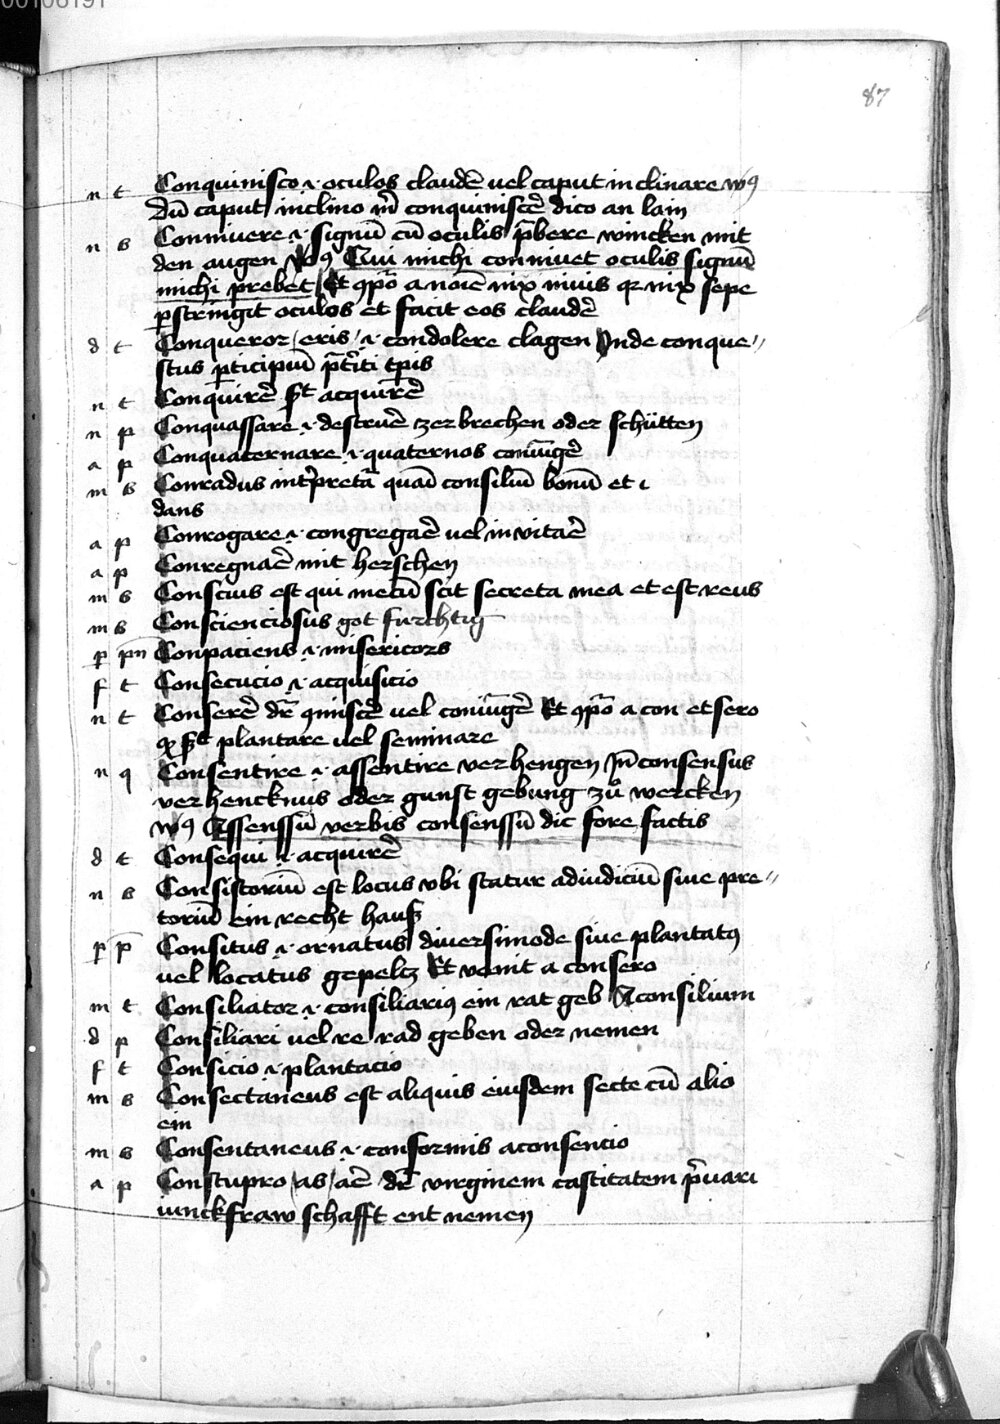 87
n t Conquinisco .i. oculos claudē vel caput inclinare wꝰ
Dū caput inclino m̄ conquiniscē dico an lain
n s Connivere .i. signū cū oculis p̄bere wincken mit
den augen Vꝰ Qui michi connivet oculis signū
michi prebet Et 9pōº a noīe nix nivis qr nix sepe
ꝑstringit oculos et facit eos claudē
d t Conqueror / eris / .i. condolere clagen Inde conque〃
stus ꝑticipiū p̄tīti tp̄is
n t Conquirē
acquirē
n p Conquassare .i. destruē zerbrechen oder schütten
a p Conquaternare .i. quaternos coniūgē
m s Conradus int̄pretat̄ quasī consiliū bonū et ı
dans
a p Conrogare .i. congregaē vel invitaē
a p Conregnaē mit herschen
m s Conscius est qui mecū scit secreta mea et est reus
m s Conscienciosus got furchtig
p pn̄ Conpaciens .i. misericors
f t Consecucio .i. acquisicio
n t Conserē dr̄ 9niscē vel coniūgē Et 9pōº a con et sero
plantare vel seminare
n q Consentire .i. assentire verhengen Jn̄ consensus
verhencknus oder gunst gebung zů wercken
wꝰ Assenssū verbis consenssū dic fore factis
d t Consequi .i. acquirē
n s Consistoriū est locus vbi statur ad iudiciū sive pre〃
toriū ein recht hauß
p p̄ Consitus .i. ornatus diversimode sive plantatꝰ
vel locatus gepeltz Et venit a consero
m t Consiliator .i. consiliariꝰ ein rat geb A consilium
d p Consiliari vel re rad geben oder nemen
f t Consicio .i. plantacio
m s Consectaneus est aliquis eiusdem secte cū alio
ein
m s Consentaneus .i. conformis a consentio
a p Constupro / as / aē dr̄ virginem castitatem p̄vari
iunckfraw schafft entnemen